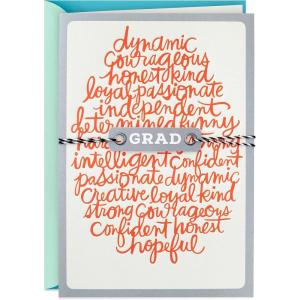 dynamic
courageous
honest kind
loyal passionate
independent
determined funny
GRAD
intelligent confident
passionate dynamic
Creative loyal kind
strong courageous
confident honest
hopeful